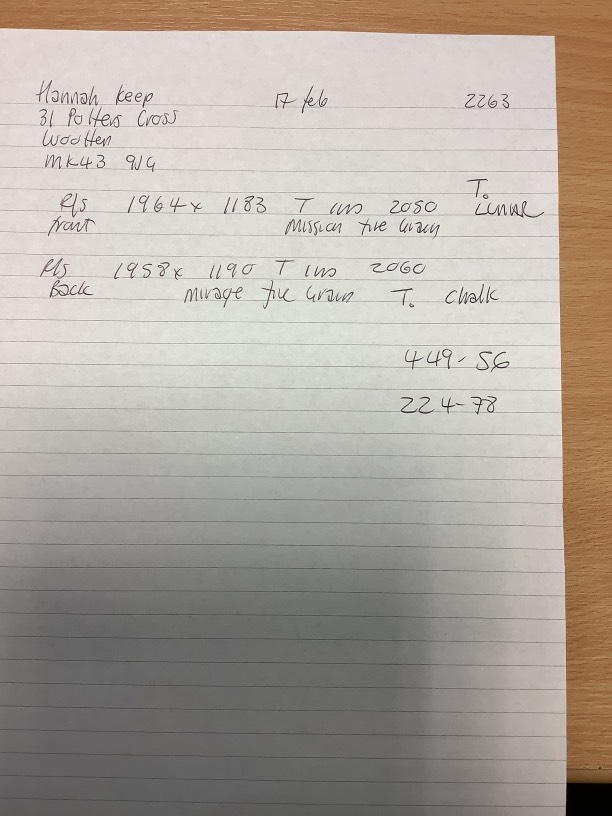 Hannah Keep 17 feb 2263
31 Potters Cross
Wootten
MK43 9JG
R/s 1964 x 1183 T ins 2050 T. Lunar
front Mission fine Grain
R/s 1958 x 1190 T ins 2060
Back Mirage fine Grain T. Chalk
449-56
224-78